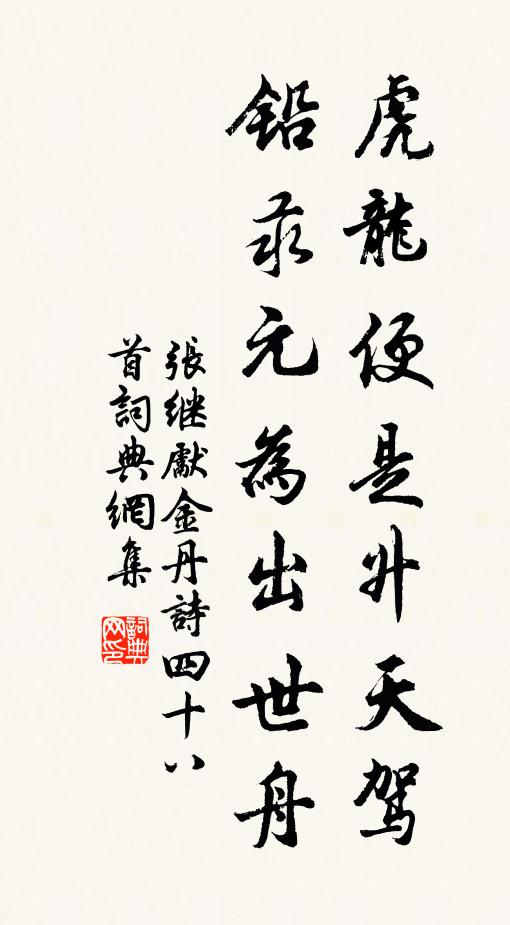 虎龍便是升天駕
鉛汞元為出世舟
張継獻金丹詩四十八
首詞典網集
詞典网印